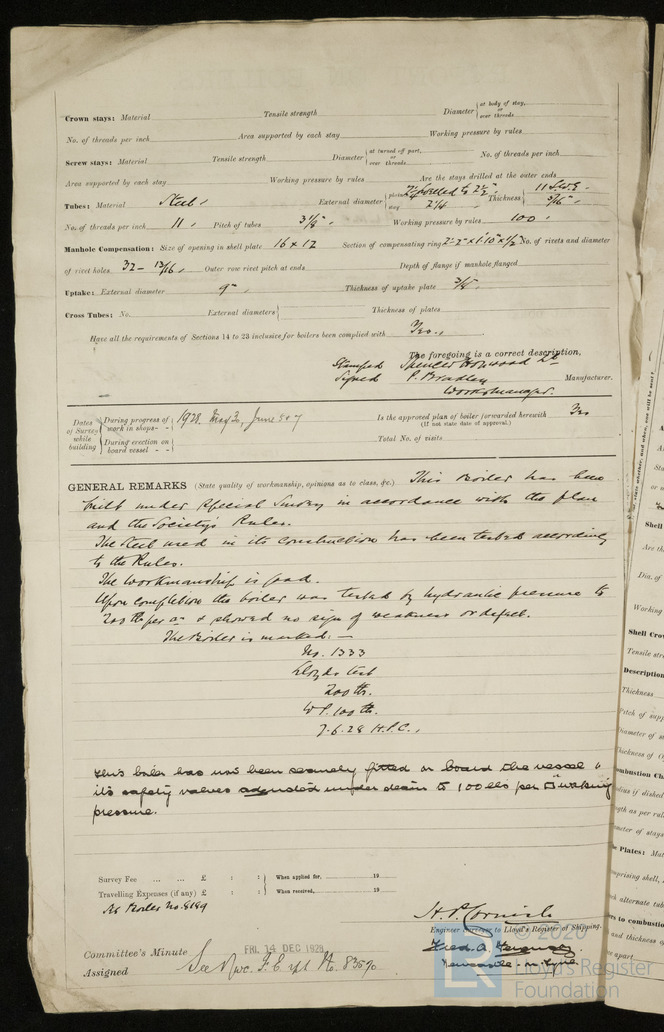 Crown stays: Material Tensile strength Diameter { at body of stay, or over threads
No. of threads per inch Area supported by each stay Working pressure by rules
Screw stays: Material Tensile strength Diameter { at turned off part, or over threads No. of threads per inch
Area supported by each stay Working pressure by rules Are the stays drilled at the outer ends
Tubes: Material Steel External diameter { plain swelled to 2½" stay 2¼ Thickness { 11 S.W.G. 5/16"
No. of threads per inch 11 Pitch of tubes 3⅛" Working pressure by rules 100
Manhole Compensation: Size of opening in shell plate 16 x 12 Section of compensating ring 2'-2" x 1'-10" x ½" No. of rivets and diameter
of rivet holes 32 - 13/16 Outer row rivet pitch at ends Depth of flange if manhole flanged
Uptake: External diameter 9" Thickness of uptake plate 3/8"
Cross Tubes: No. External diameters { Thickness of plates
Have all the requirements of Sections 14 to 23 inclusive for boilers been complied with Yes.
The foregoing is a correct description,
Stamped Spencer Hopwood Ld
Signed P. Bradley Manufacturer.
Works Manager.
Dates of Survey while building { During progress of work in shops - - 1928. May 3, June 5 & 7 Is the approved plan of boiler forwarded herewith Yes
(If not state date of approval.)
During erection on board vessel - - Total No. of visits
GENERAL REMARKS (State quality of workmanship, opinions as to class, &c.) This Boiler has been
built under Special Survey in accordance with the plan
and the Society's Rules.
The Steel used in its construction has been tested according
to the Rules.
The workmanship is good.
Upon completion the boiler was tested by hydraulic pressure to
200 lb per □" & showed no sign of weakness or defect.
The Boiler is marked: —
No. 1333
Lloyds test
200 lb.
W.P. 100 lb.
7.6.28 H.P.C.
This boiler has now been securely fitted on board the vessel &
its safety valves adjusted under steam to 100 lbs per □" working
pressure.
Survey Fee ... ... £ : : } When applied for, 19
Travelling Expenses (if any) £ : : When received, 19
Boiler No. 8199
H. P. Cornish
Engineer Surveyor to Lloyd's Register of Shipping.
Fred. A.
Newcastle-on-Tyne
Committee's Minute FRI. 14 DEC 1928
Assigned See Nwc. F.E. rpt No. 83590
© 2020
LR
Lloyd's Register
Foundation
Shell
Working
Shell Crow
Tensile stre
Description
Thickness